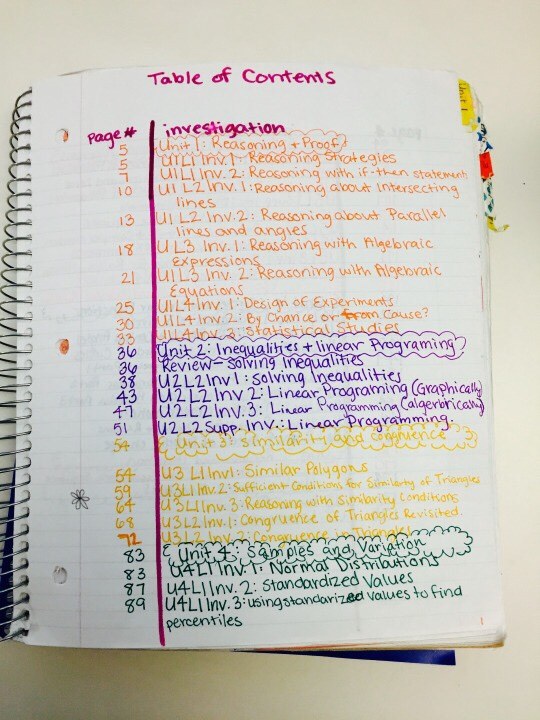 Table of Contents
Page # investigation
5 Unit 1: Reasoning + Proof
5 U1L1 Inv. 1: Reasoning Strategies
7 U1L1 Inv. 2: Reasoning with if-then statements
10 U1 L2 Inv. 1: Reasoning about Intersecting
lines
13 U1 L2 Inv. 2: Reasoning about Parallel
lines and angles
18 U1 L3 Inv. 1: Reasoning with Algebraic
Expressions
21 U1L3 Inv. 2: Reasoning with Algebraic
Equations
25 U1L4 Inv. 1: Design of Experiments
30 U1L4 Inv. 2: By Chance or from Cause?
33 U1L4 Inv. 3: Statistical Studies
36 Unit 2: Inequalities + linear Programing
36 Review - solving Inequalities
38 U2L2 Inv 1: solving Inequalities
43 U2 L2 Inv 2: Linear Programing (Graphically)
47 U2 L2 Inv. 3: Linear Programming (algerbrically)
51 U2 L2 Supp. Inv.: Linear Programming
54 Unit 3: similarity and congruence
54 U3 L1 Inv1: Similar Polygons
59 U3L1 Inv. 2: Sufficient Conditions for Similarity of Triangles
64 U3L1 Inv. 3: Reasoning with Similarity Conditions
68 U3L2 Inv. 1: Congruence of Triangles Revisited
72 U3L2 Inv. 2: Congruence in Triangles
83 Unit 4: Samples and Variation
83 U4L1 Inv. 1: Normal Distributions
87 U4L1 Inv. 2: Standardized Values
89 U4L1 Inv. 3: using standarized values to find
percentiles
1
Unit 1